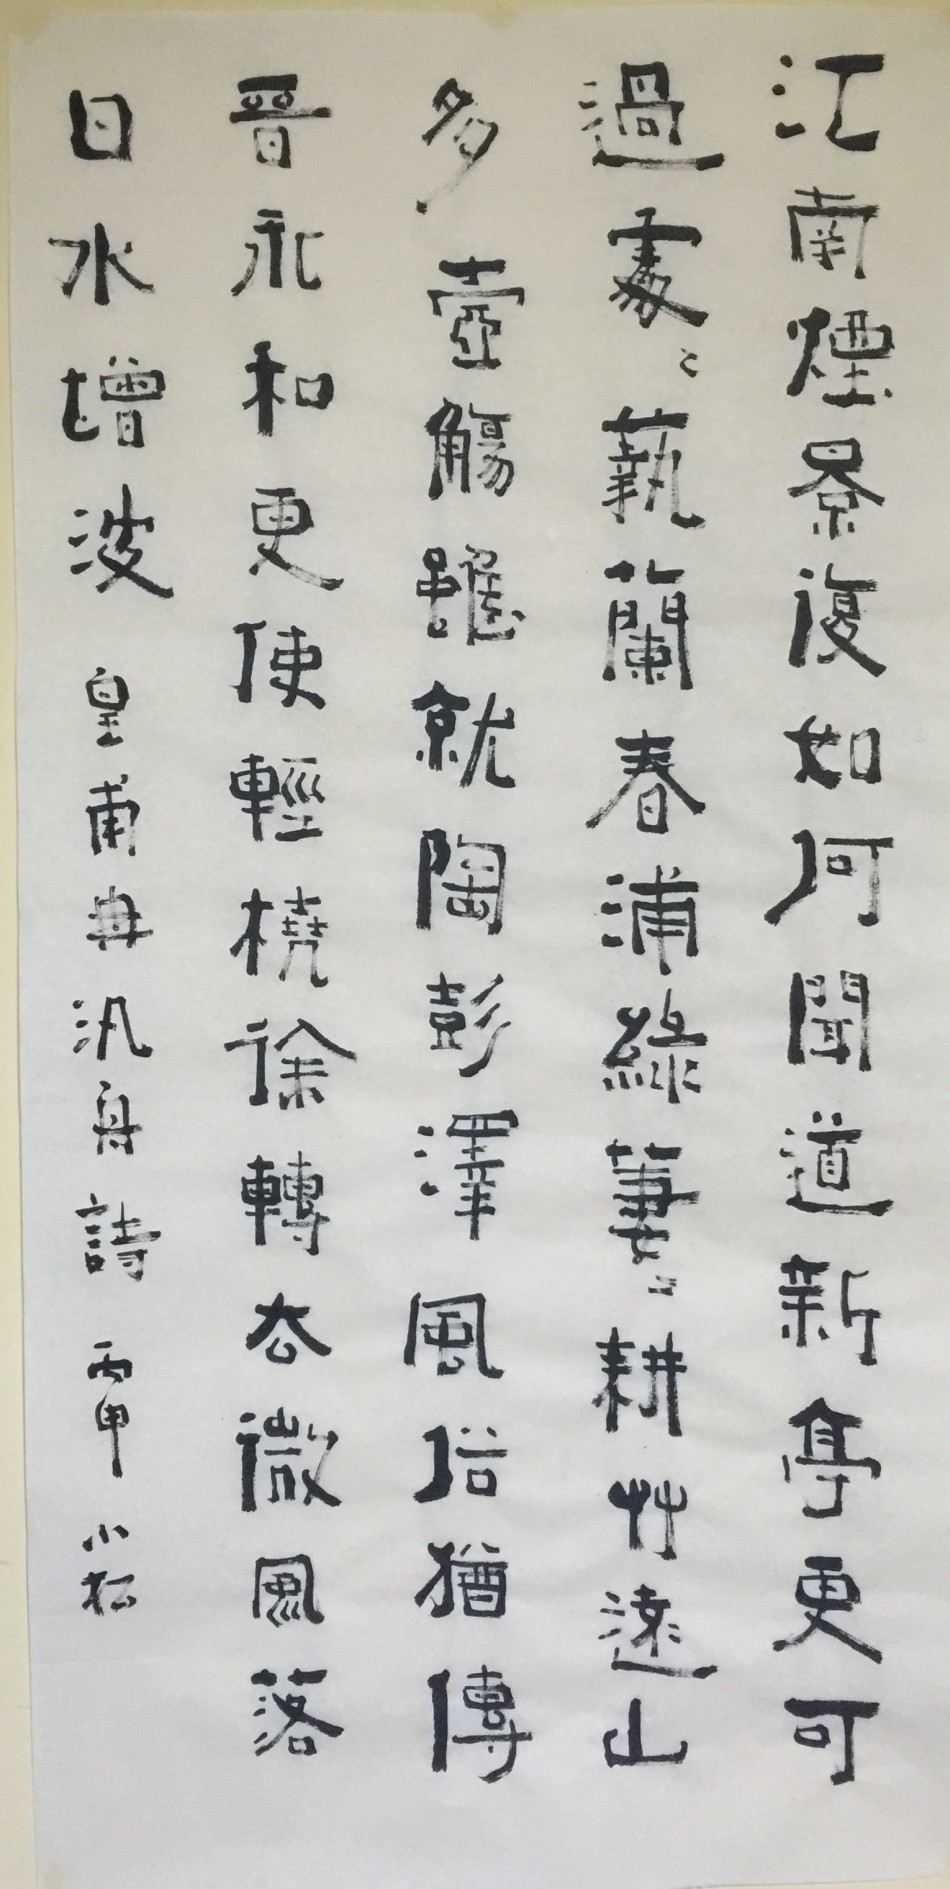 江南煙景復如何聞道新亭更可
過處〻蓺蘭春浦綠萋〻耕艸遠山
多壺觴雖就陶彭澤風俗猶傳
晉永和更使輕橈徐轉去微風落
日水增波 皇甫冉汎舟詩 丙申 小松